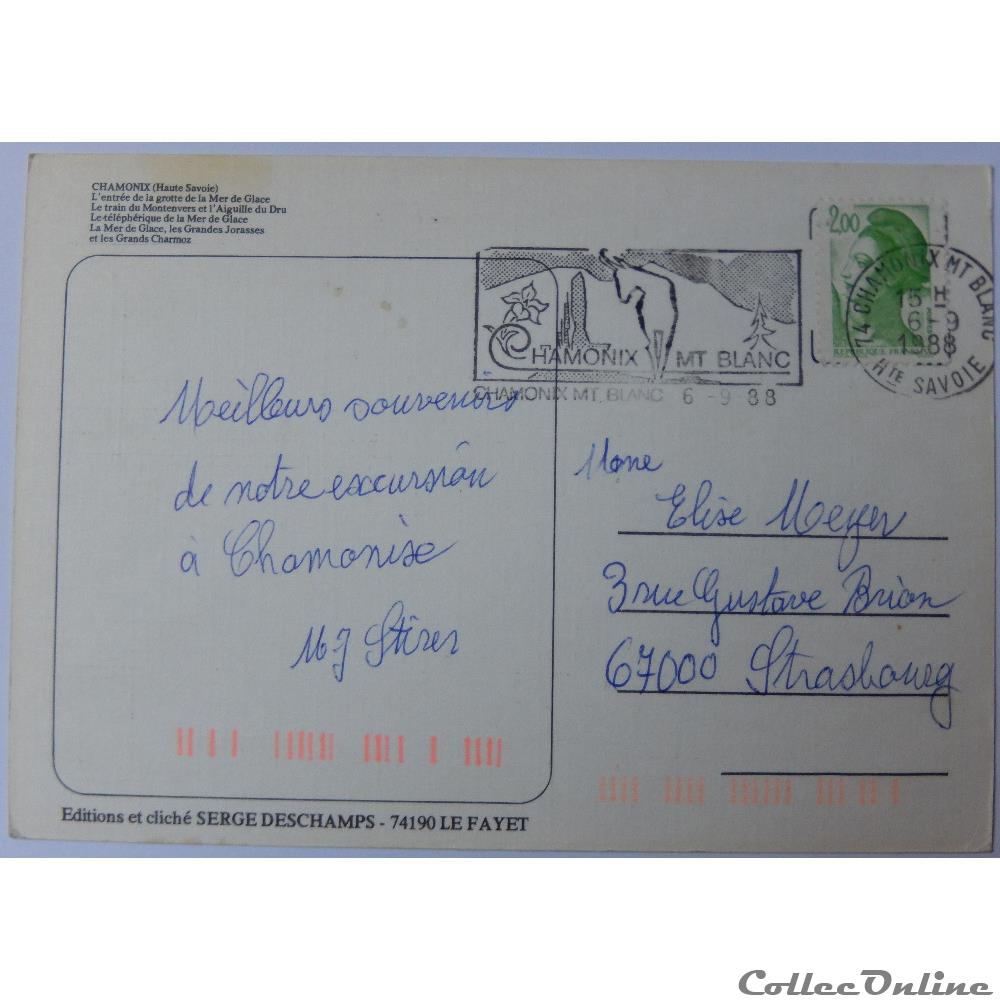 CHAMONIX (Haute Savoie)
L'entrée de la grotte de la Mer de Glace
Le train du Montenvers et l'Aiguille du Dru
Le téléphérique de la Mer de Glace
La Mer de Glace, les Grandes Jorasses
et les Grands Charmoz
2,00
REPUBLIQUE
74 CHAMONIX MT BLANC
15 H
6 - 9
1988
Hte SAVOIE
CHAMONIX MT BLANC
CHAMONIX MT. BLANC 6 - 9 - 88
Meilleurs souvenirs
de notre excursion
à Chamonix
MJ
Mme
Elise Meyer
3 rue Gustave Brion
67000 Strasbourg
Editions et cliché SERGE DESCHAMPS - 74190 LE FAYET
CollecOnline